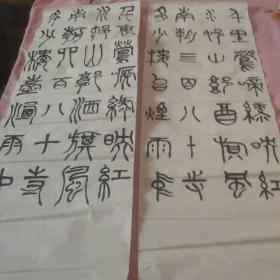 千里鶯啼綠映紅
水村山郭酒旗風
南朝四百八十寺
多少樓臺煙雨中
千里鶯啼綠映紅
水村山郭酒旗風
南朝四百八十寺
多少樓臺煙雨中